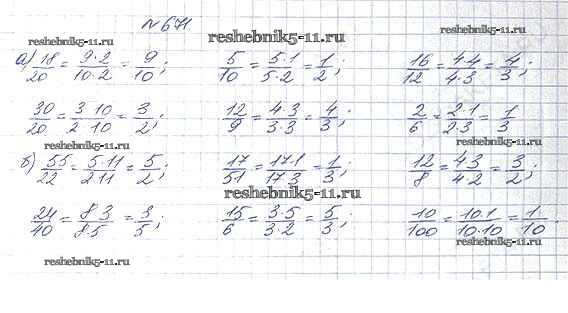 № 671
reshebnik5-11.ru reshebnik5-11.ru reshebnik5-11.ru
а) 18/20 = 9·2/10·2 = 9/10; 5/10 = 5·1/5·2 = 1/2; 16/12 = 4·4/4·3 = 4/3;
30/20 = 3 10/2 10 = 3/2; 12/9 = 4·3/3·3 = 4/3; 2/6 = 2·1/2·3 = 1/3
reshebnik5-11.ru reshebnik5-11.ru
б) 55/22 = 5·11/2 11 = 5/2; 17/51 = 17·1/17·3 = 1/3; 12/8 = 4·3/4·2 = 3/2;
reshebnik5-11.ru
24/40 = 8·3/8·5 = 3/5; 15/6 = 3·5/3·2 = 5/3; 10/100 = 10·1/10·10 = 1/10.
reshebnik5-11.ru
reshebnik5-11.ru